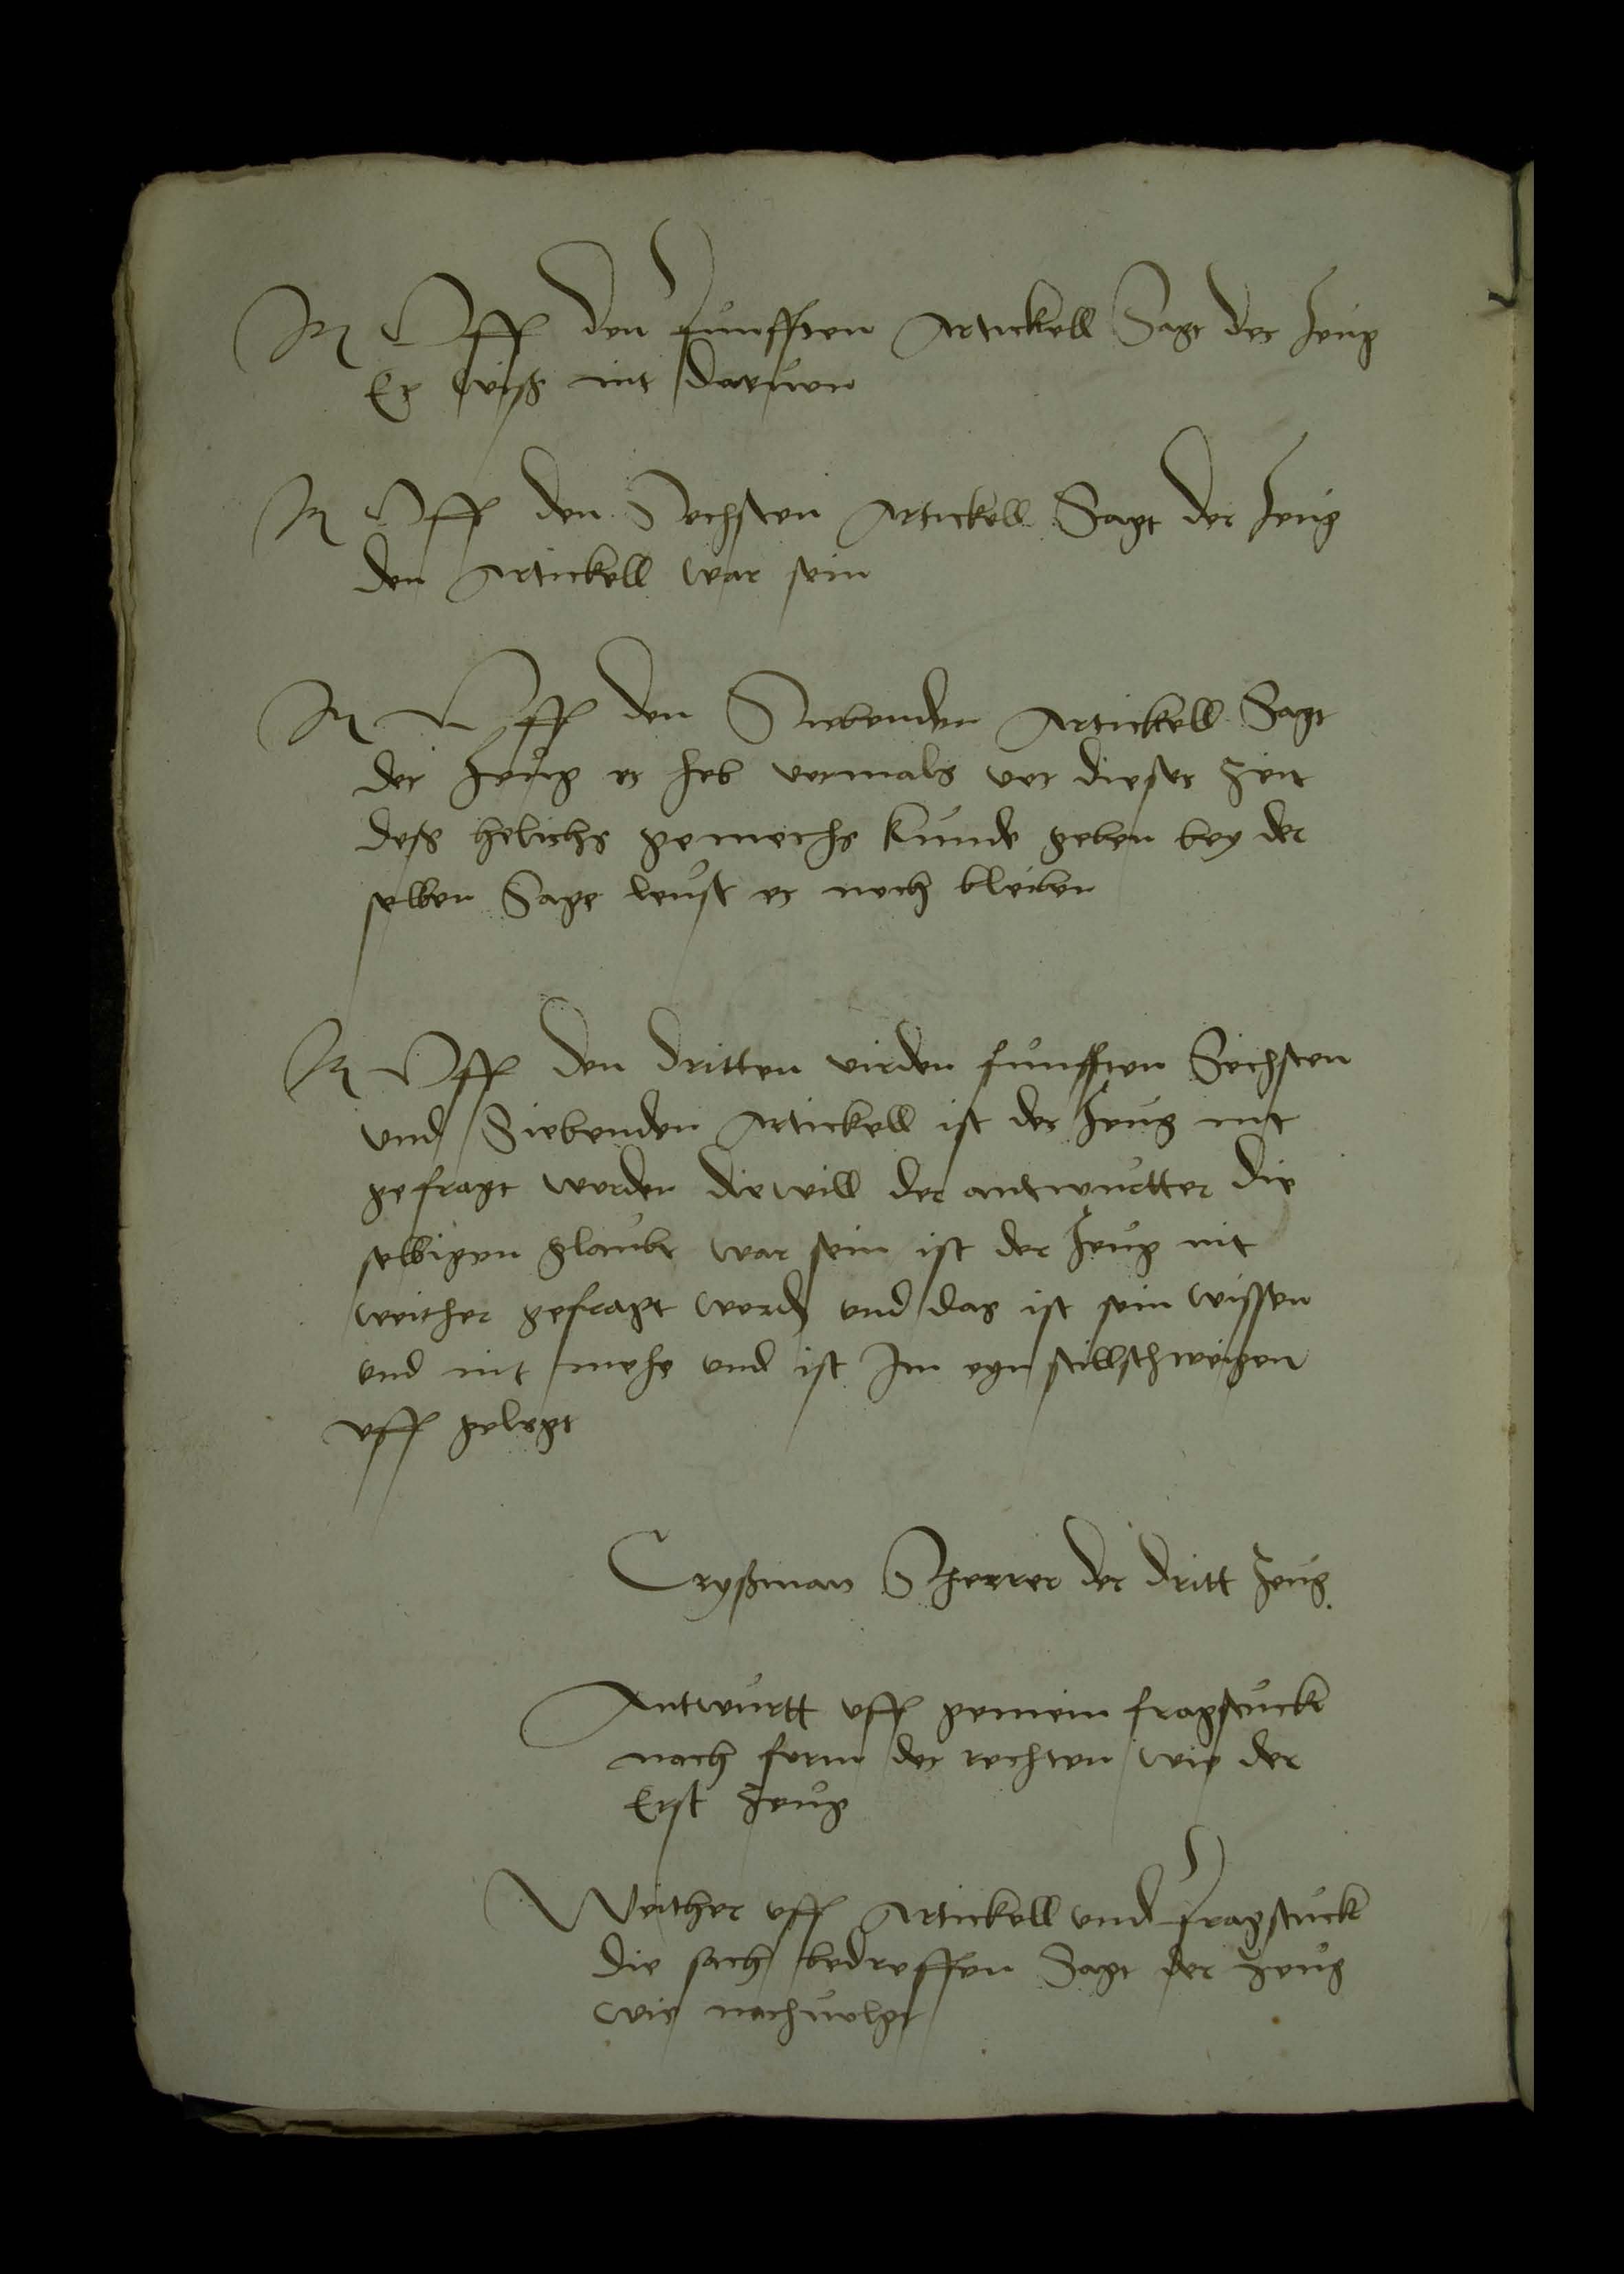 It Vff den funfften Artickell Sagt der Zeug
Er wiß nit daruon
It Vff den Sechsten Artickell Sagt der Zeug
den Artickell war sein
It Vff den Siebenden Artickell Sagt
der Zeug er hab vormals vor dieser Zeit
deß helichs gemechs kunde geben bey der
selben Sage leust er noch bleiben
It Vff den dritten virden funfften Sechsten
vnd Siebenden Artickell ist der Zeug nit
gefragt worden diewill der antwurtter die
selbigen glaubt war sein ist der Zeug nit
weither gefragt word vnd das ist sein wissen
vnd nit mehe vnd ist Im eyn stillschweigen
vff gelegt
Cryßman Scherrer der dritt Zeug.
Antwurtt vff gemein fragstuck
nach form der rechten wie der
Erst Zeug
Weither vff Artickell vnd fragstuck
die sach bedreffen Sagt der Zeug
wie nachuolgt